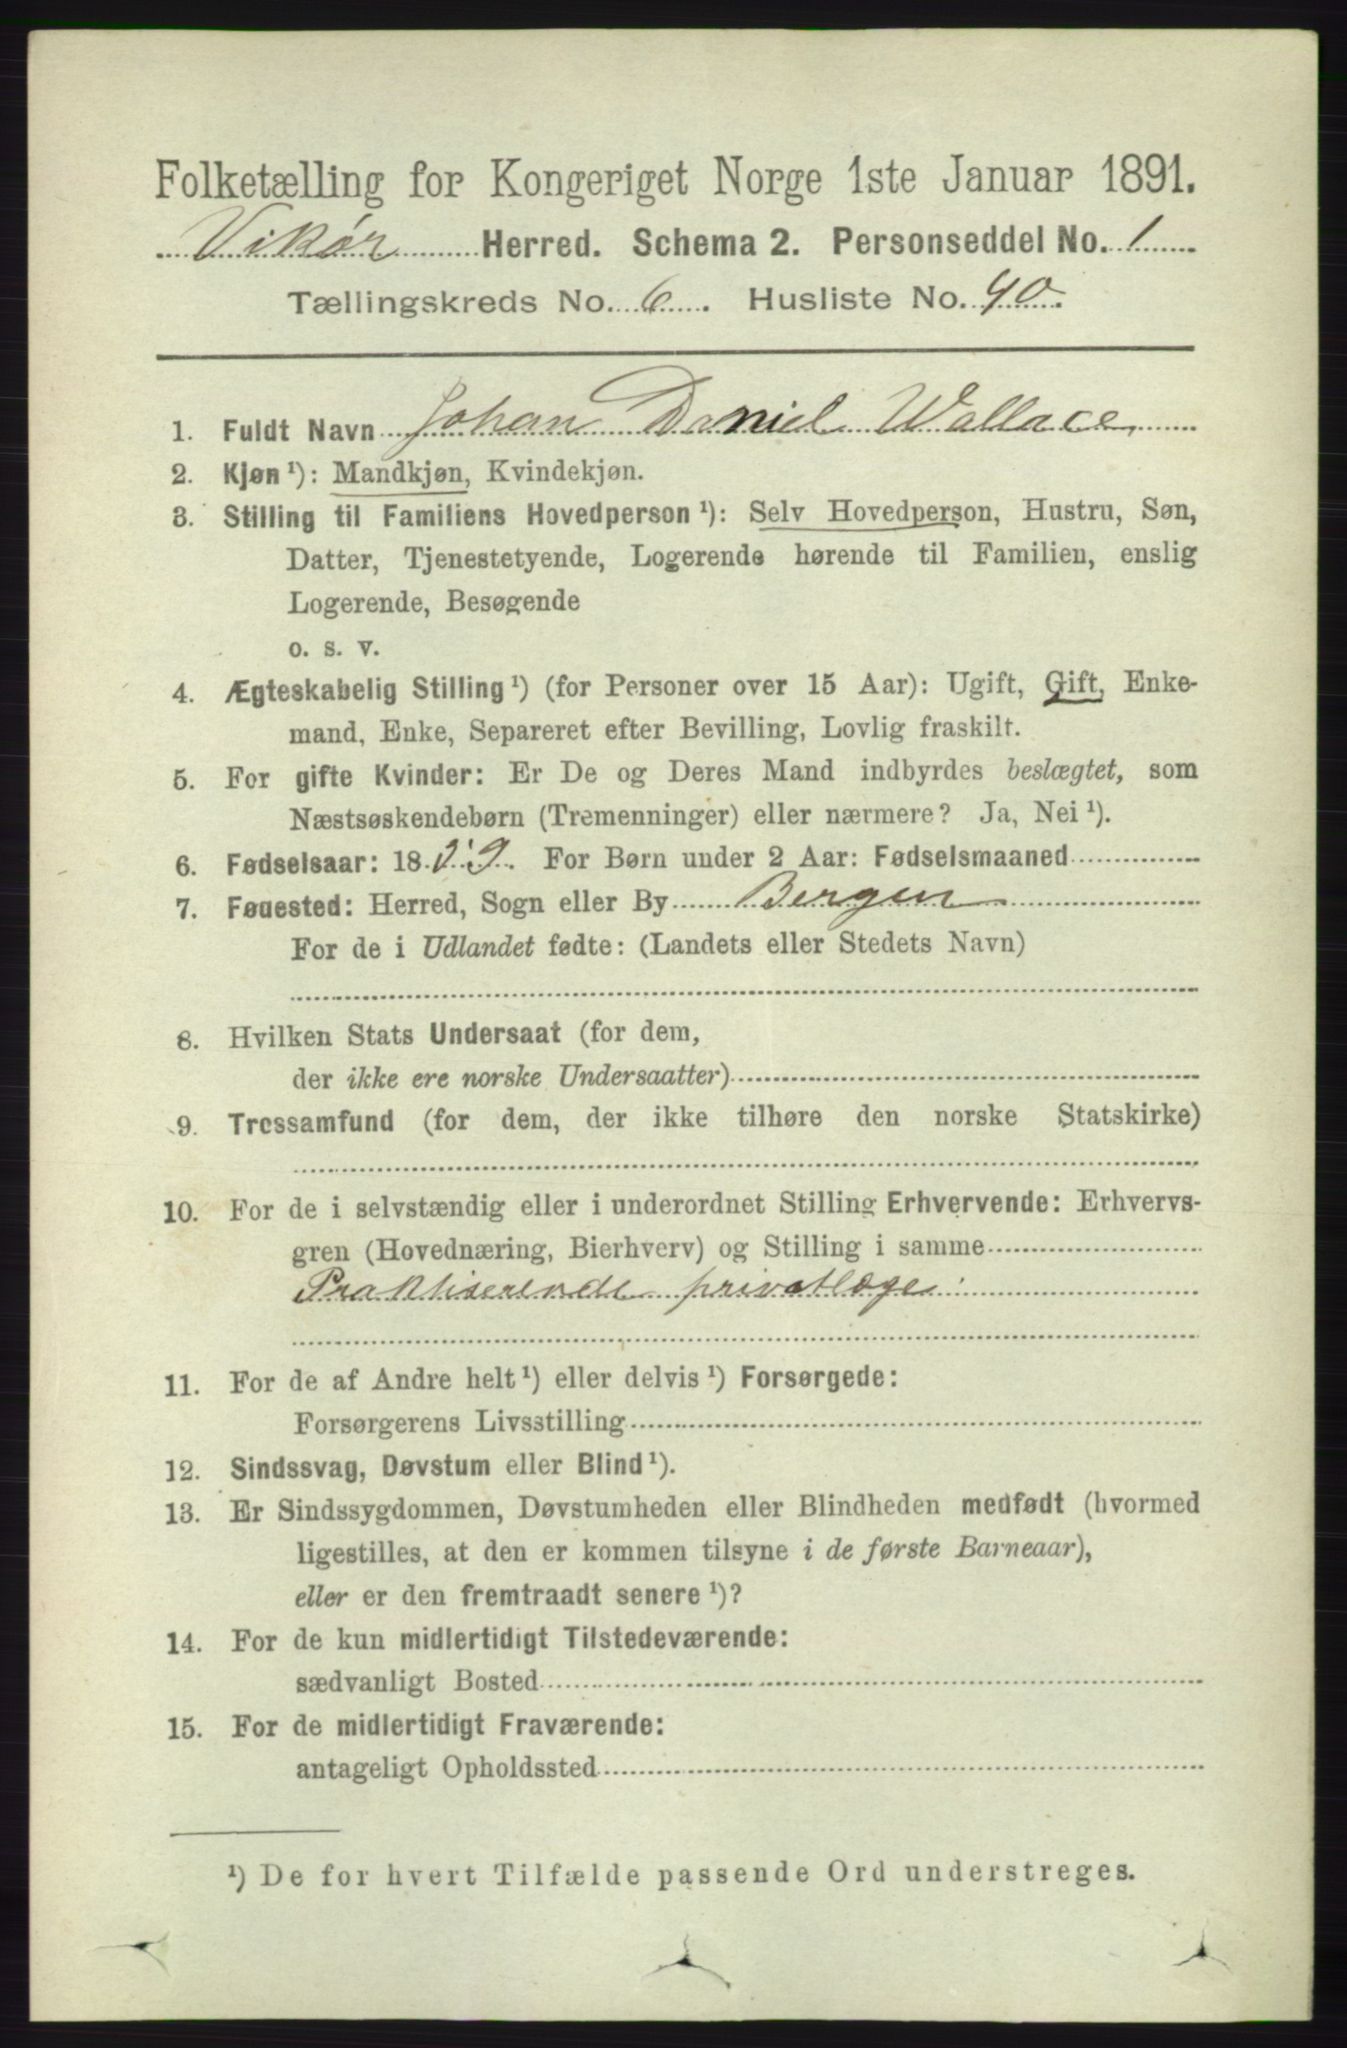 Folketælling for Kongeriget Norge 1ste Januar 1891.
Vikør Herred. Schema 2. Personseddel No. 1
Tællingskreds No. 6. Husliste No. 40.
1. Fuldt Navn Johan Daniel Wallace
2. Kjøn ¹): Mandkjøn, Kvindekjøn.
3. Stilling til Familiens Hovedperson ¹): Selv Hovedperson, Hustru, Søn,
Datter, Tjenestetyende, Logerende hørende til Familien, enslig
Logerende, Besøgende
o. s. v.
4. Ægteskabelig Stilling ¹) (for Personer over 15 Aar): Ugift, Gift, Enke-
mand, Enke, Separeret efter Bevilling, Lovlig fraskilt.
5. For gifte Kvinder: Er De og Deres Mand indbyrdes beslægtet, som
Næstsøskendebørn (Tremenninger) eller nærmere? Ja, Nei ¹).
6. Fødselsaar: 1859. For Børn under 2 Aar: Fødselsmaaned
7. Føuested: Herred, Sogn eller By Bergen
For de i Udlandet fødte: (Landets eller Stedets Navn)
8. Hvilken Stats Undersaat (for dem,
der ikke ere norske Undersaatter)
9. Trossamfund (for dem, der ikke tilhøre den norske Statskirke)
10. For de i selvstændig eller i underordnet Stilling Erhvervende: Erhvervs-
gren (Hovednæring, Bierhverv) og Stilling i samme
Praktiserende privatlæge.
11. For de af Andre helt ¹) eller delvis ¹) Forsørgede:
Forsørgerens Livsstilling
12. Sindssvag, Døvstum eller Blind ¹).
13. Er Sindssygdommen, Døvstumheden eller Blindheden medfødt (hvormed
ligestilles, at den er kommen tilsyne i de første Barneaar),
eller er den fremtraadt senere ¹)?
14. For de kun midlertidigt Tilstedeværende:
sædvanligt Bosted
15. For de midlertidigt Fraværende:
antageligt Opholdssted
¹) De for hvert Tilfælde passende Ord understreges.